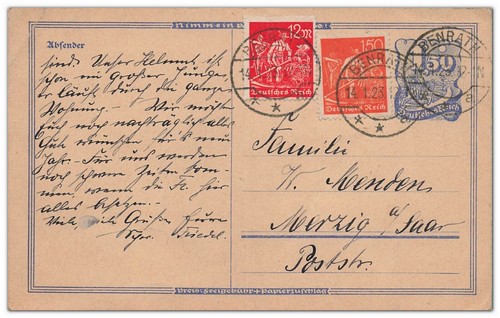 Nimm ein
Absender
sind. Unser Helmut ist
schon ein großer Junge,
er läuft durch die ganze
Wohnung. – Wir möchten
Euch noch nachträglich alles
Gute wünschen für's neue
Jahr. – Für uns werden
noch schwere Zeiten kom-
men, wenn die Fr. hier
alles besetzen.
Viele, viele Grüße Eure
Friedel.
12 M
Deutsches Reich
150
Deutsches Reich
50
Deutsches Reich
BENRATH
14.1.23
BENRATH
Familie
W. Menden
Merzig a/Saar
Poststr.
Preis: Freigebühr + Papierzuschlag